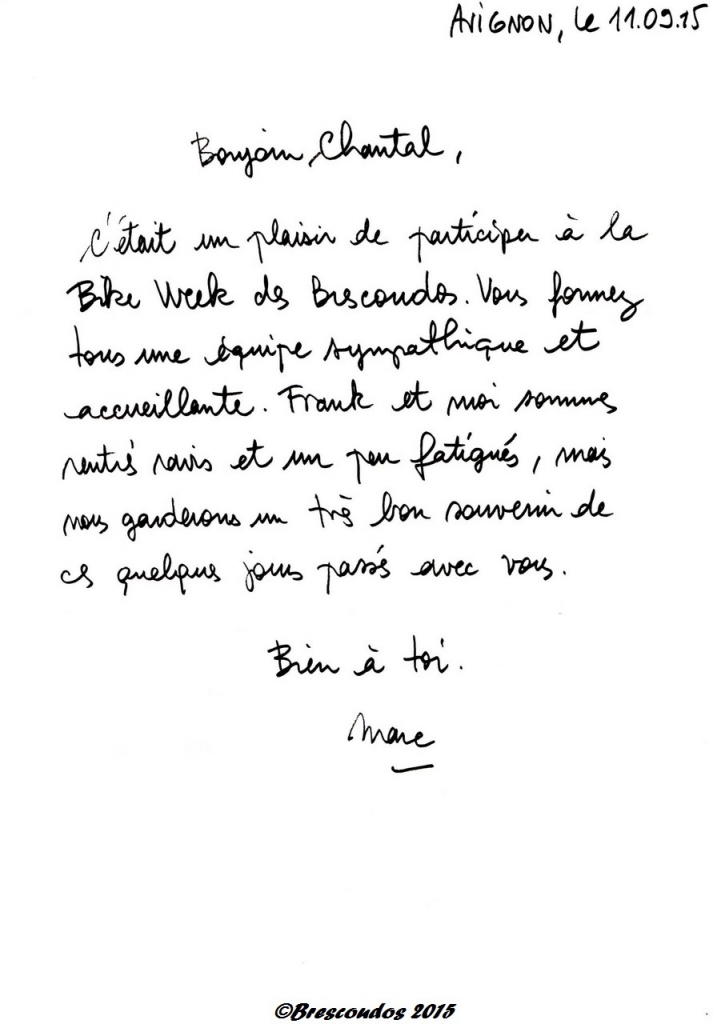 AVIGNON, le 11.09.15
Bonjour Chantal,
C'était un plaisir de participer à la
Bike Week des Brescoudos. Vous formez
tous une équipe sympathique et
accueillante. Frank et moi sommes
rentrés ravis et un peu fatigués, mais
nous garderons un très bon souvenir de
ces quelques jours passés avec vous.
Bien à toi.
Marc
©Brescoudos 2015